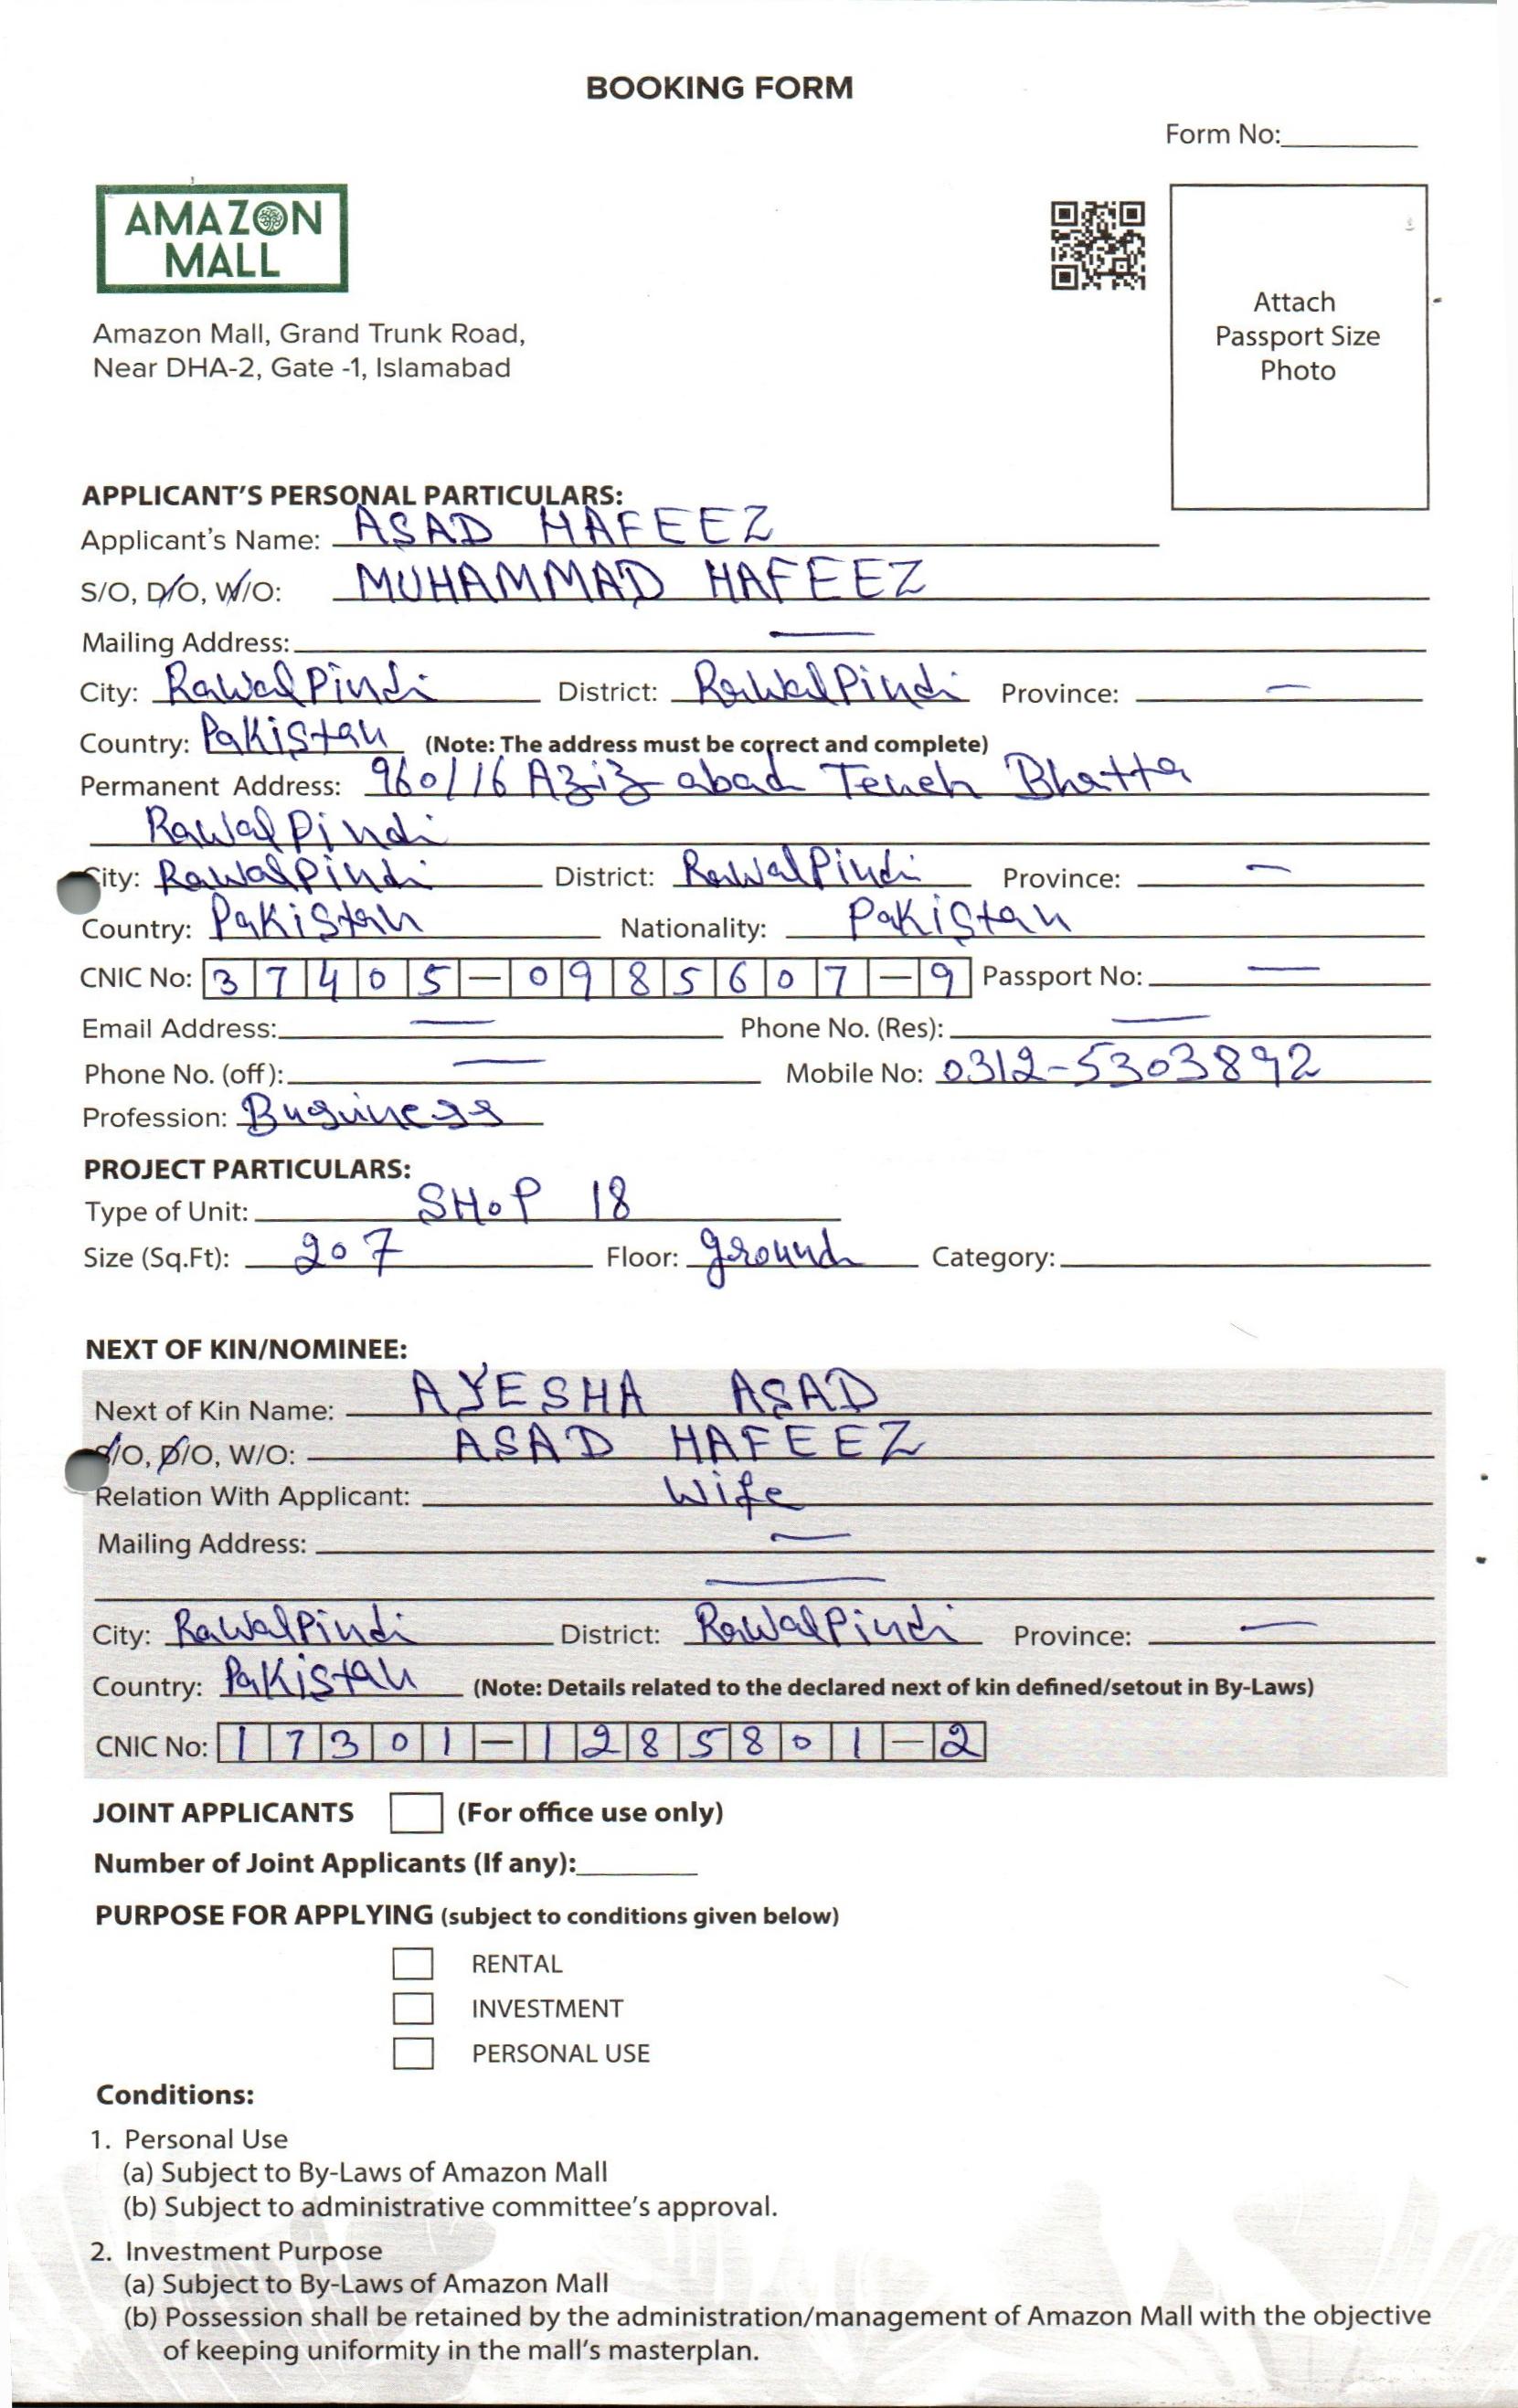 BOOKING FORM
Form No:
AMAZON
MALL
Amazon Mall, Grand Trunk Road,
Near DHA-2, Gate -1, Islamabad
Attach
Passport Size
Photo
APPLICANT'S PERSONAL PARTICULARS:
Applicant's Name: ASAD HAFEEZ
S/O, D/O, W/O: MUHAMMAD HAFEEZ
Mailing Address: —
City: RawalPindi District: RawalPindi Province: —
Country: Pakistan (Note: The address must be correct and complete)
Permanent Address: 960/16 Aziz abad Tench Bhatta
RawalPindi
City: RawalPindi District: RawalPindi Province: —
Country: Pakistan Nationality: Pakistan
CNIC No: 37405-0985607-9 Passport No: —
Email Address: — Phone No. (Res): —
Phone No. (off): — Mobile No: 0312-5303892
Profession: Business
PROJECT PARTICULARS:
Type of Unit: SHOP 18
Size (Sq.Ft): 207 Floor: ground Category:
NEXT OF KIN/NOMINEE:
Next of Kin Name: AYESHA ASAD
S/O, D/O, W/O: ASAD HAFEEZ
Relation With Applicant: Wife
Mailing Address: —
—
City: RawalPindi District: RawalPindi Province: —
Country: Pakistan (Note: Details related to the declared next of kin defined/setout in By-Laws)
CNIC No: 17301-1285801-2
JOINT APPLICANTS (For office use only)
Number of Joint Applicants (If any):
PURPOSE FOR APPLYING (subject to conditions given below)
RENTAL
INVESTMENT
PERSONAL USE
Conditions:
1. Personal Use
(a) Subject to By-Laws of Amazon Mall
(b) Subject to administrative committee's approval.
2. Investment Purpose
(a) Subject to By-Laws of Amazon Mall
(b) Possession shall be retained by the administration/management of Amazon Mall with the objective
of keeping uniformity in the mall's masterplan.